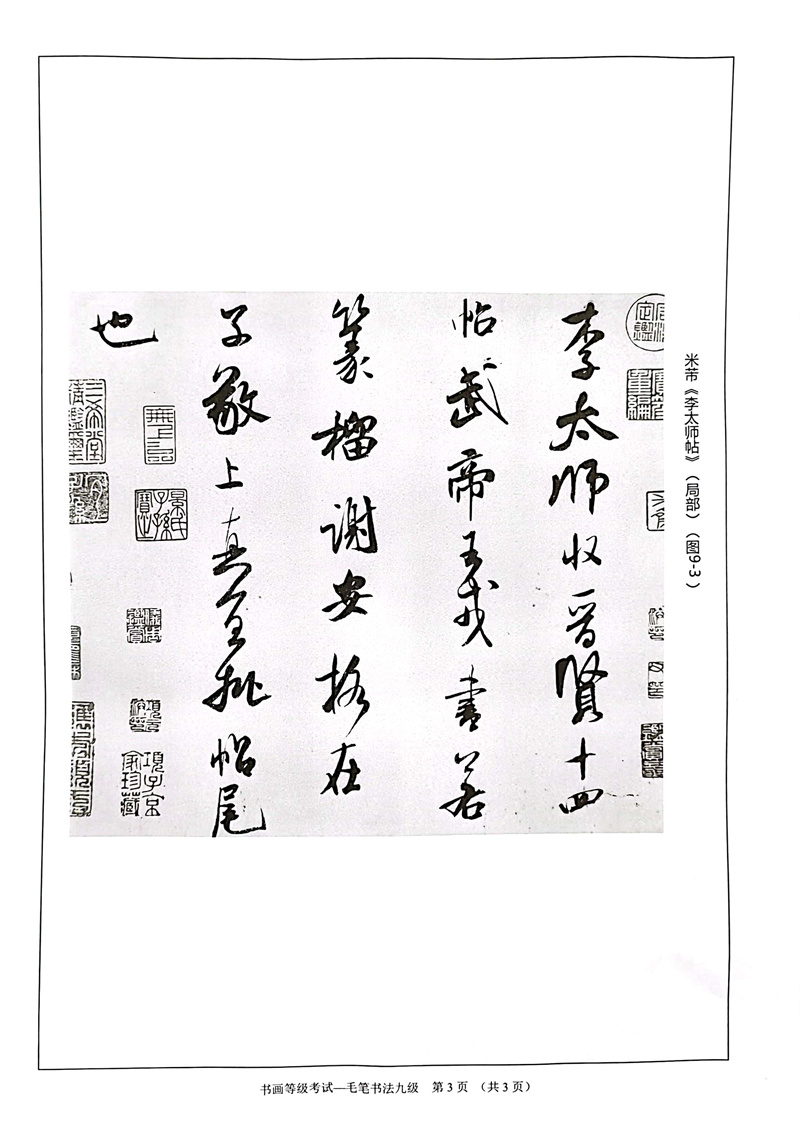 米芾《李太师帖》（局部）（图9-3）
李太师收晋賢十四
帖武帝王戎書若
篆籀謝安格在
子敬上真宜批帖尾
也
項子京
家珍藏
书画等级考试—毛笔书法九级 第3页 （共3页）